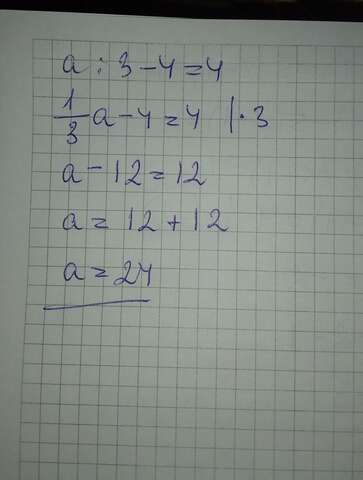 a : 3 - 4 = 4
1/3 a - 4 = 4 | · 3
a - 12 = 12
a = 12 + 12
a = 24